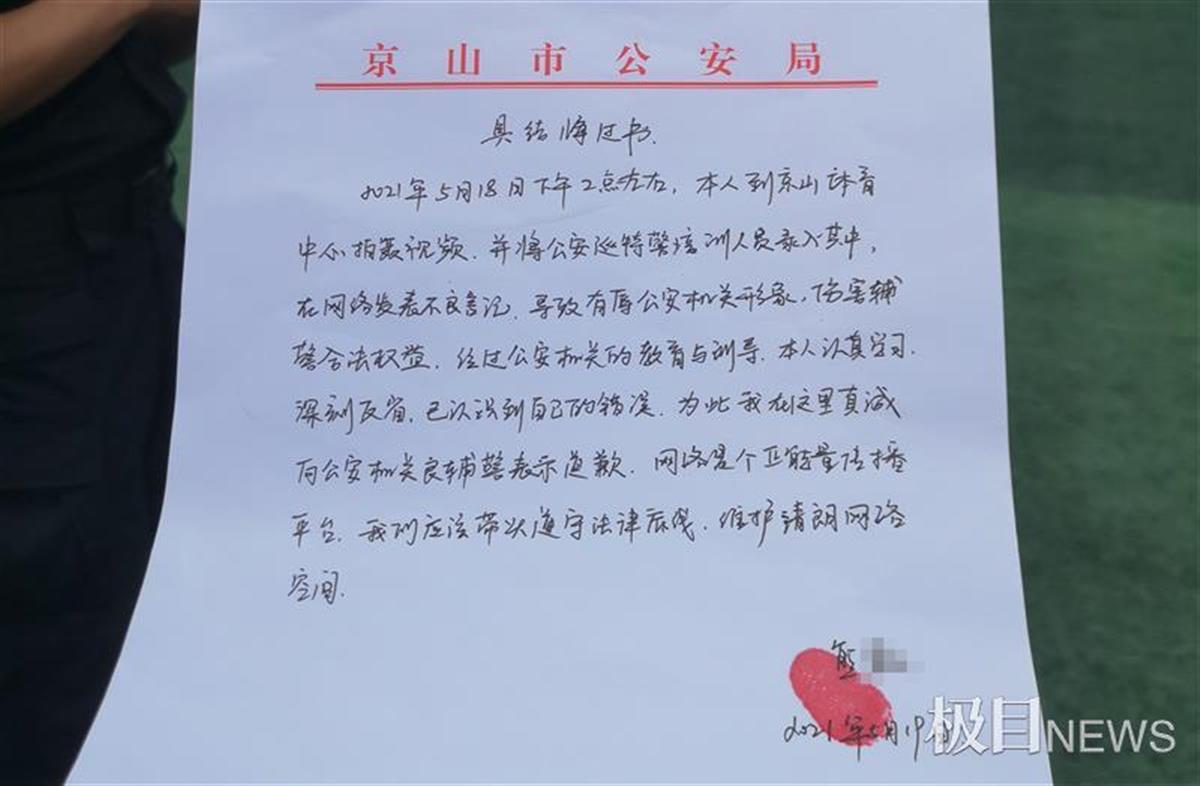 京山市公安局
具结悔过书.
2021年5月18日下午2点左右,本人到京山体育
中心拍摄视频.并将公安巡特警培训人员录入其中,
在网络发表不良言论.导致有辱公安机关形象,伤害辅
警合法权益.经过公安机关的教育与训导.本人认真学习.
深刻反省.已认识到自己的错误.为此我在这里真诚
向公安机关及辅警表示道歉.网络是个正能量传播
平台.我们应该带头遵守法律底线.维护清朗网络
空间.
熊
2021年5月19日
极目NEWS